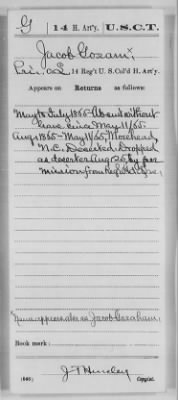 G 14 H. Art'y. U.S.C.T.
Jacob Gozam x,
Pvt., Co. L, 14 Reg't U. S. Col'd H. Art'y.
Appears on Returns as follows:
May to July 1865 Absent without
leave since May 11/65
Aug 1865 - May 11/65, Morehead,
N.C. Deserted. Dropped
as deserter Aug 25 by per
mission from
Name appears also as Jacob Gozaham,
Book mark:
(646)
Copyist.